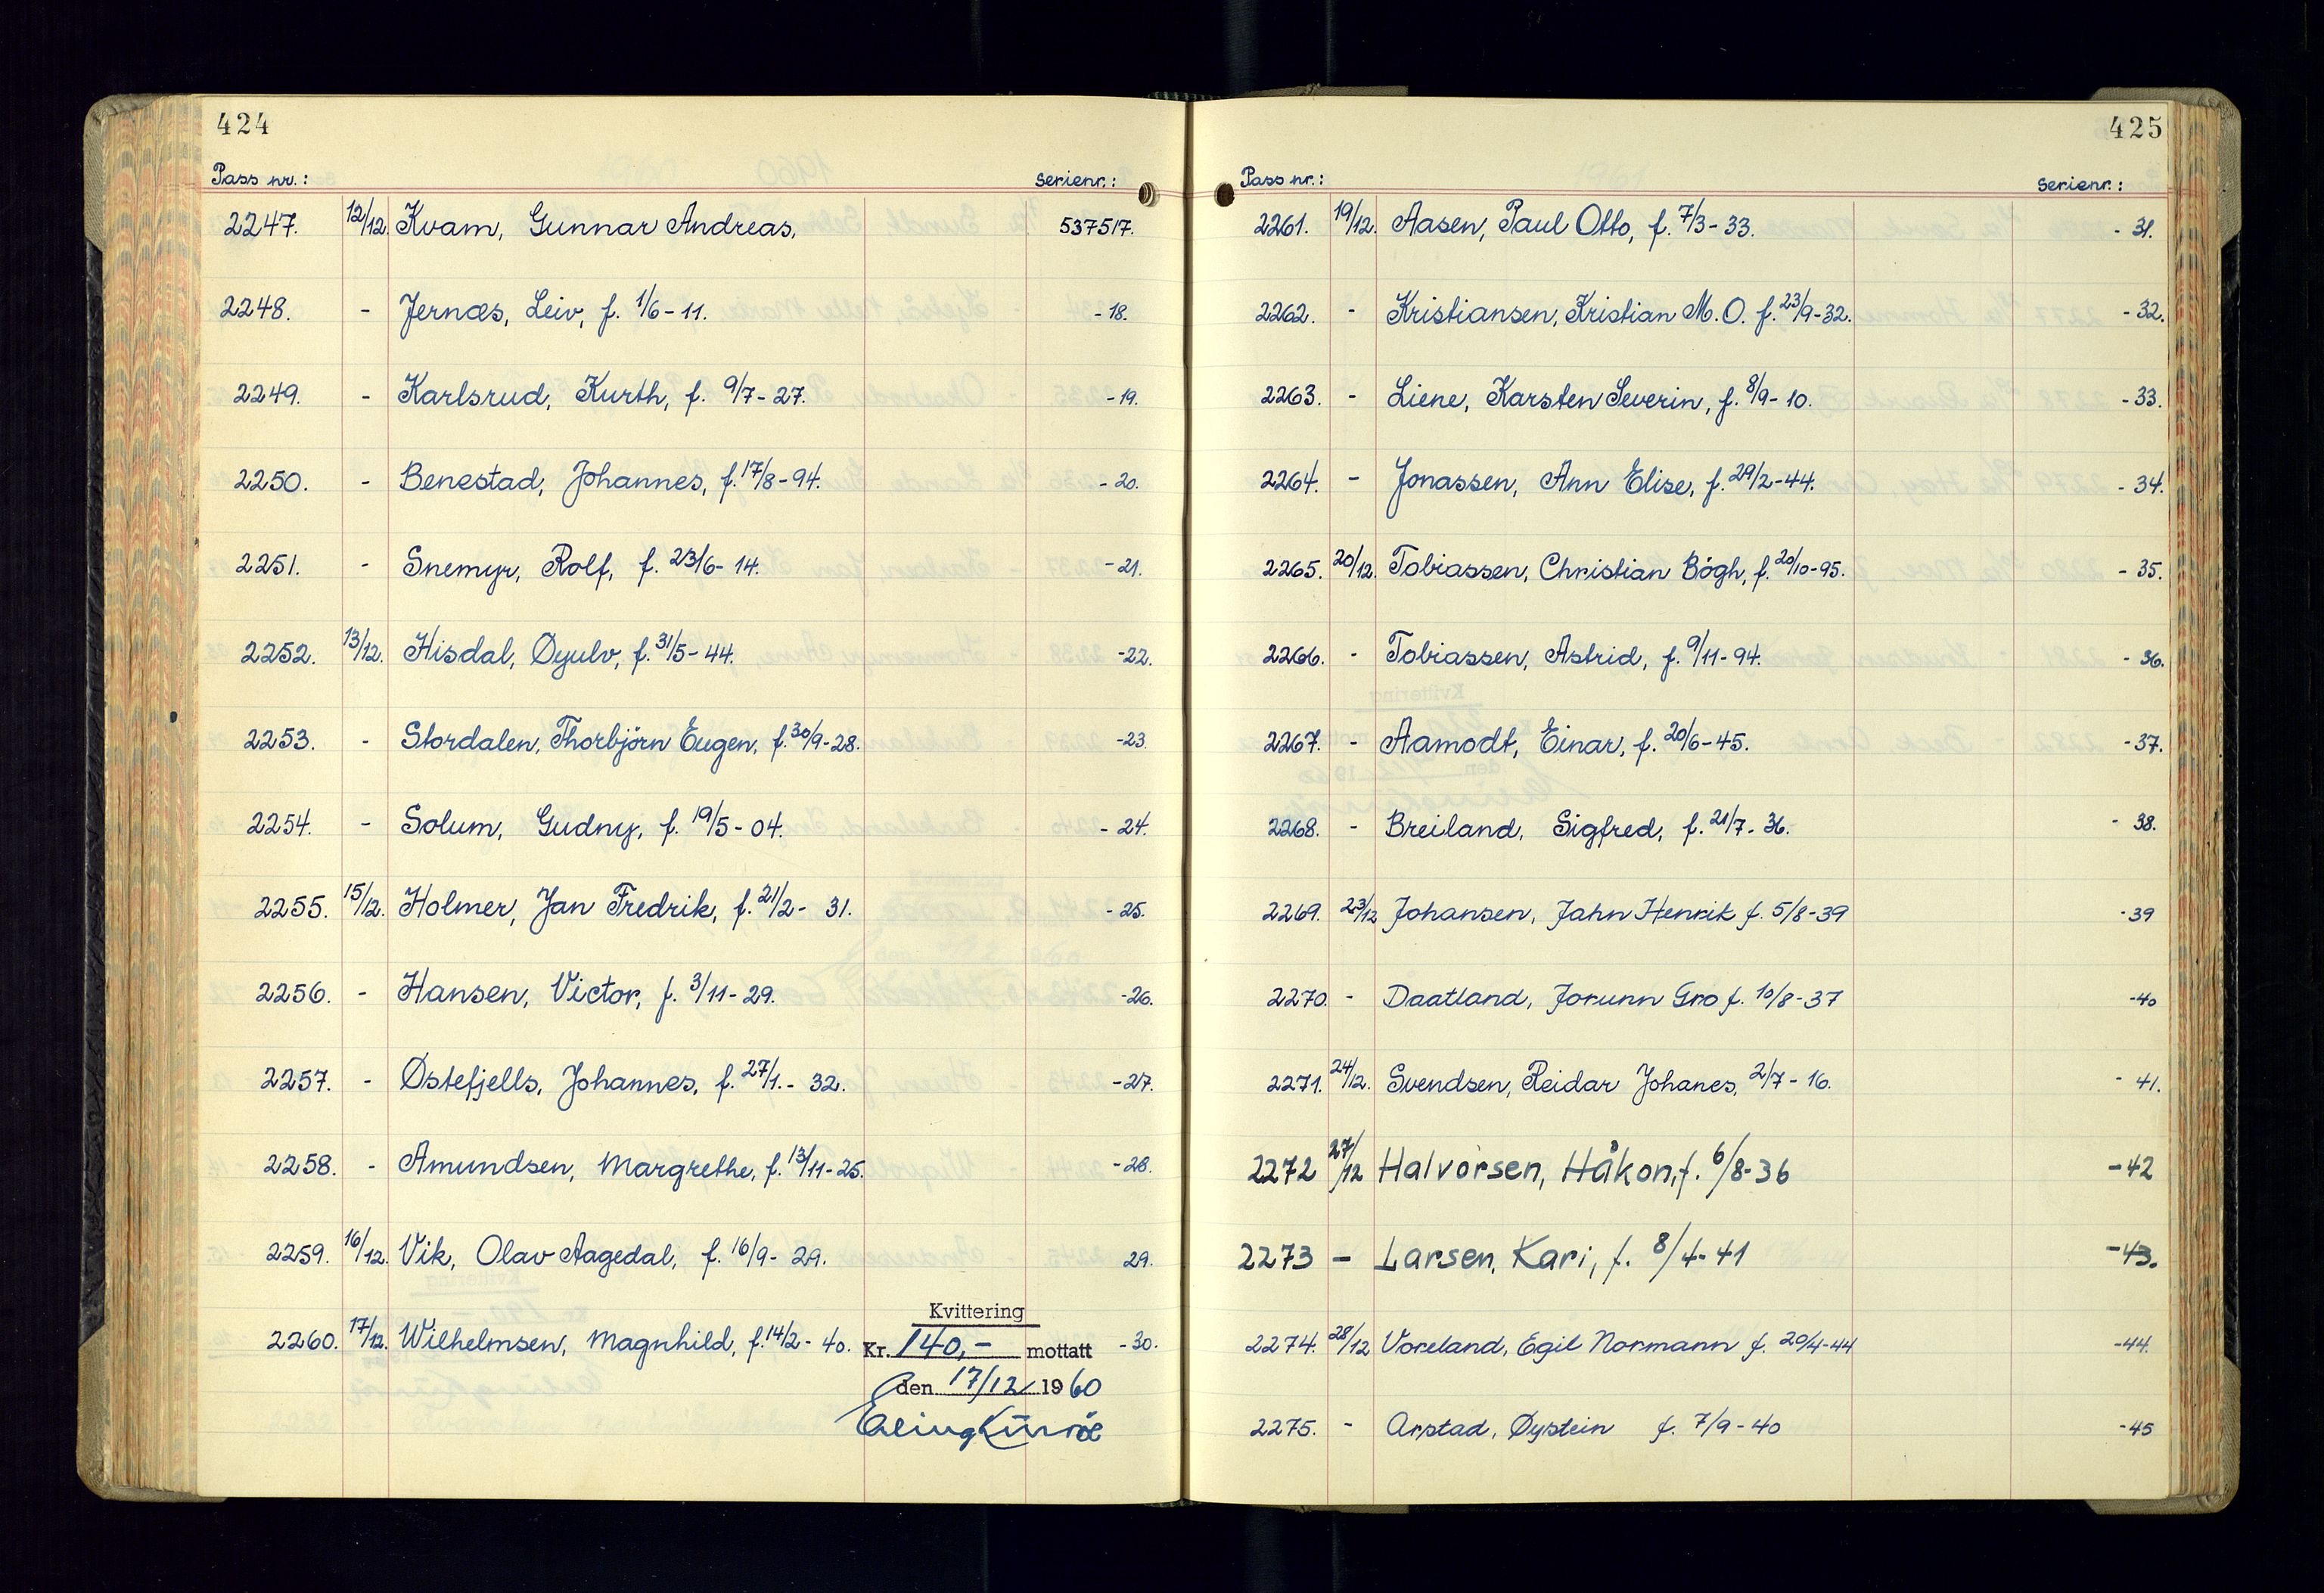 424
Pass nr.: Serienr.:
2247. 12/12. Kvam, Gunnar Andreas. 537517.
2248. - Jernæs, Leiv, f. 1/6-11. -18.
2249. - Karlsrud, Kurth, f. 9/7-27. -19.
2250. - Benestad, Johannes, f. 17/8-94. -20.
2251. - Snemyr, Rolf, f. 23/6-14. -21.
2252. 13/12. Hisdal, Øyulv, f. 31/5-44. -22.
2253. - Stordalen, Thorbjörn Eugen, f. 30/9-28. -23.
2254. - Solum, Gudny, f. 19/5-04. -24.
2255. 15/12. Holmer, Jan Fredrik, f. 21/2-31. -25.
2256. - Hansen, Victor, f. 3/11-29. -26.
2257. - Østefjells, Johannes, f. 27/1.-32. -27.
2258. - Amundsen, Margrethe, f. 13/11-25. -28.
2259. 16/12. Vik, Olav Aagedal, f. 16/9-29. 29.
2260. 17/12. Wilhelmsen, Magnhild, f. 14/2-40. -30.
Kvittering
Kr. 140,- mottatt
den 17/12 1960
425
Pass nr.: Serienr.:
2261. 19/12. Aasen, Paul Otto, f. 7/3-33. -31.
2262. - Kristiansen, Kristian M. O. f. 23/9-32. -32.
2263. - Liene, Karsten Severin, f. 8/9-10. -33.
2264. - Jonassen, Ann Elise, f. 29/2-44. -34.
2265. 20/12. Tobiassen, Christian Bögh, f. 20/10-95. -35.
2266. - Tobiassen, Astrid, f. 9/11-94. -36.
2267. - Aamodt, Einar, f. 20/6-45. -37.
2268. - Breiland, Sigfred, f. 21/7-36. -38.
2269. 23/12 Johansen, Jahn Henrik f. 5/8-39 -39
2270. - Daatland, Jorunn Gro f. 10/8-37 -40
2271. 24/12. Svendsen, Reidar Johanes, 2/7-16. -41.
2272 27/12 Halvorsen, Håkon, f. 6/8-36 -42
2273 - Larsen, Kari, f. 8/4-41 -43.
2274. 28/12 Voreland, Egil Normann f. 20/4-44 -44.
2275. - Arstad, Øystein f. 7/9-40 -45